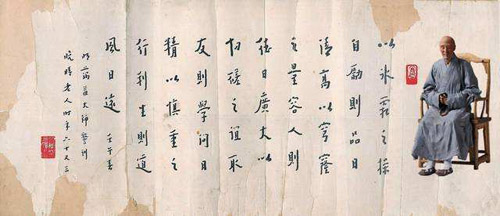 以氷霜之操
自勵則品日
清高以穹窿
之量容人則
德日廣大以
切磋之誼取
友則學問日
精以慎重之
行利生則道
風日遠 壬午春
蕅益大師警訓
晚晴老人時年六十又三